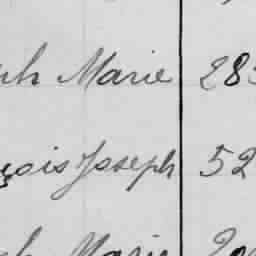 ph Marie 28
çois Joseph 52
Marie